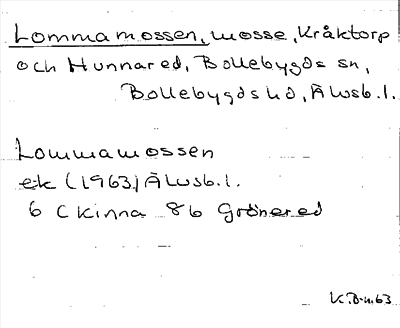 Lommamossen, mosse, Kråktorp
och Hunnared, Bollebygds sn,
Bollebygds hd, Älvsb. l.
Lommamossen
ek (1963) Älvsb. l.
6 C Kinna 8b Grönered
K. B-n. 63